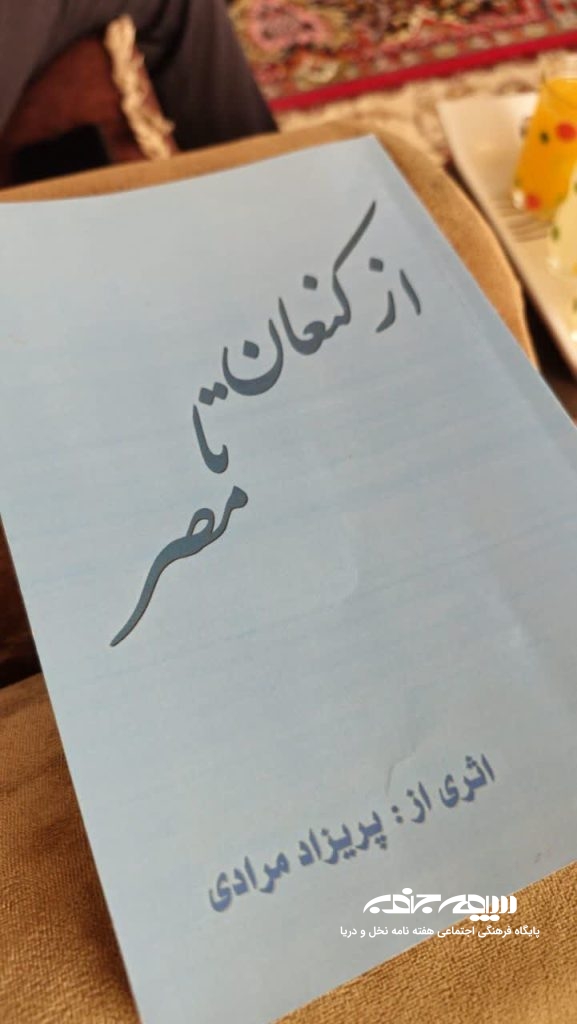 از کنعان
تا
مصر
اثری از: پریزاد مرادی
سیمای جنوب
پایگاه فرهنگی اجتماعی هفته نامه نخل و دریا